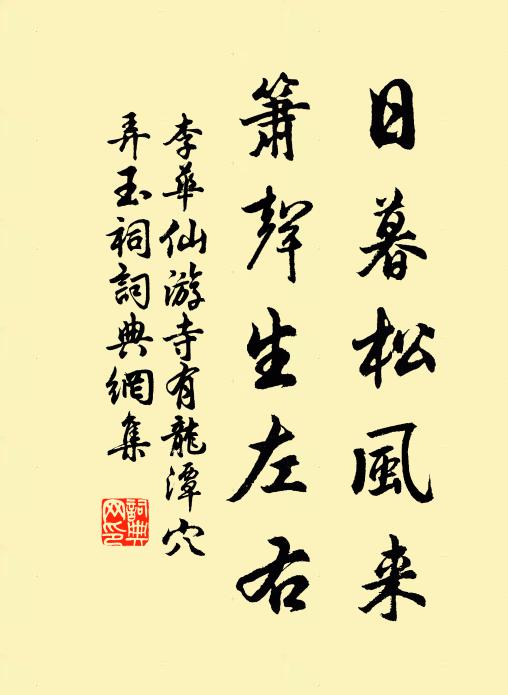 日暮松風来
簫聲生左右
李華仙游寺有龍潭穴
弄玉祠詞典網集
詞典
网印